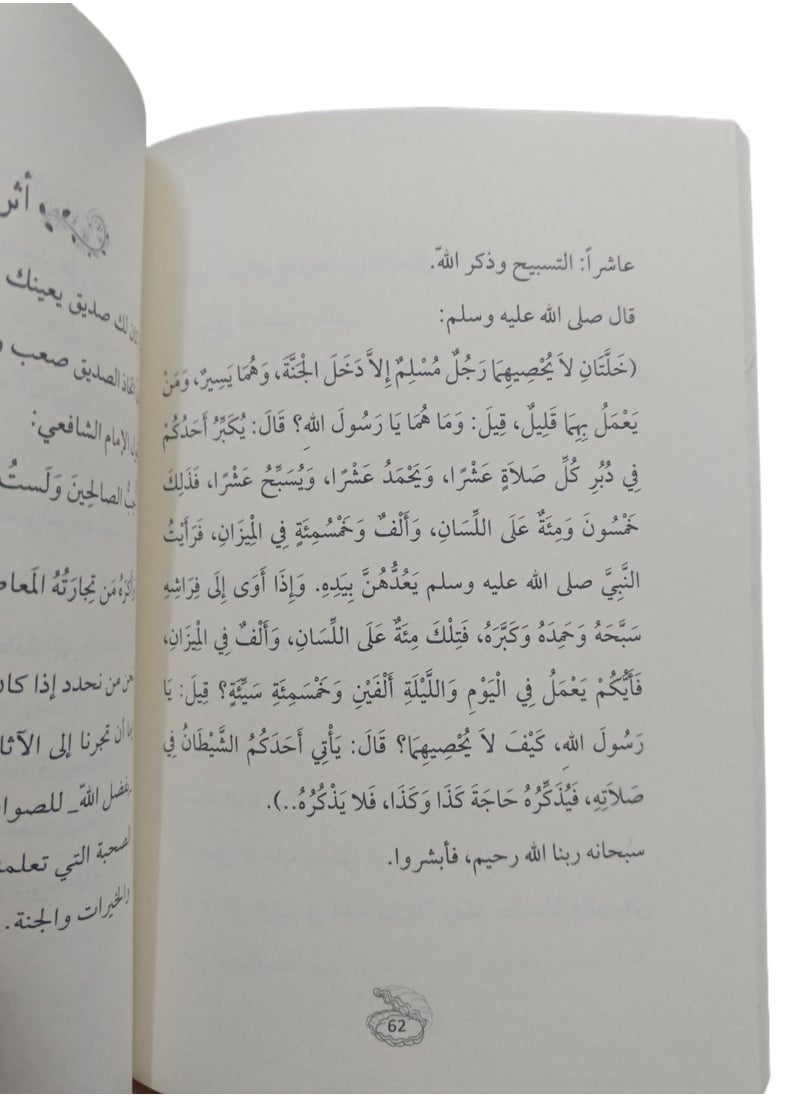 عاشراً: التسبيح وذكر اللهّ.
قال صلى الله عليه وسلم:
(خَلَّتَانِ لاَ يُحْصِيهِمَا رَجُلٌ مُسْلِمٌ إِلاَّ دَخَلَ الْجَنَّةَ، وَهُمَا يَسِيرٌ، وَمَنْ
يَعْمَلُ بِهِمَا قَلِيلٌ، قِيلَ: وَمَا هُمَا يَا رَسُولَ اللهِ؟ قَالَ: يُكَبِّرُ أَحَدُكُمْ
فِي دُبُرِ كُلِّ صَلاَةٍ عَشْرًا، وَيَحْمَدُ عَشْرًا، وَيُسَبِّحُ عَشْرًا، فَذَلِكَ
خَمْسُونَ وَمِئَةٌ عَلَى اللِّسَانِ، وَأَلْفٌ وَخَمْسُمِئَةٍ فِي الْمِيزَانِ، فَرَأَيْتُ
النَّبِيَّ صلى الله عليه وسلم يَعُدُّهُنَّ بِيَدِهِ. وَإِذَا أَوَى إِلَى فِرَاشِهِ
سَبَّحَهُ وَحَمِدَهُ وَكَبَّرَهُ، فَتِلْكَ مِئَةٌ عَلَى اللِّسَانِ، وَأَلْفٌ فِي الْمِيزَانِ،
فَأَيُّكُمْ يَعْمَلُ فِي الْيَوْمِ وَاللَّيْلَةِ أَلْفَيْنِ وَخَمْسَمِئَةِ سَيِّئَةٍ؟ قِيلَ: يَا
رَسُولَ اللهِ، كَيْفَ لاَ يُحْصِيهِمَا؟ قَالَ: يَأْتِي أَحَدَكُمُ الشَّيْطَانُ فِي
صَلاَتِهِ، فَيُذَكِّرُهُ حَاجَةَ كَذَا وَكَذَا، فَلا يَذْكُرُهُ..).
سبحانه ربنا الله رحيم، فأبشروا.
62
أثر
لك صديق يعينك
الصديق صعب
الإمام الشافعي:
الصالحِينَ وَلَستُ
مَن تِجارَتُهُ
من نحدد إذا كان
أن تجرنا إلى
بفضل اللهّ_
الصحبة التي
والخيرات والجنة.